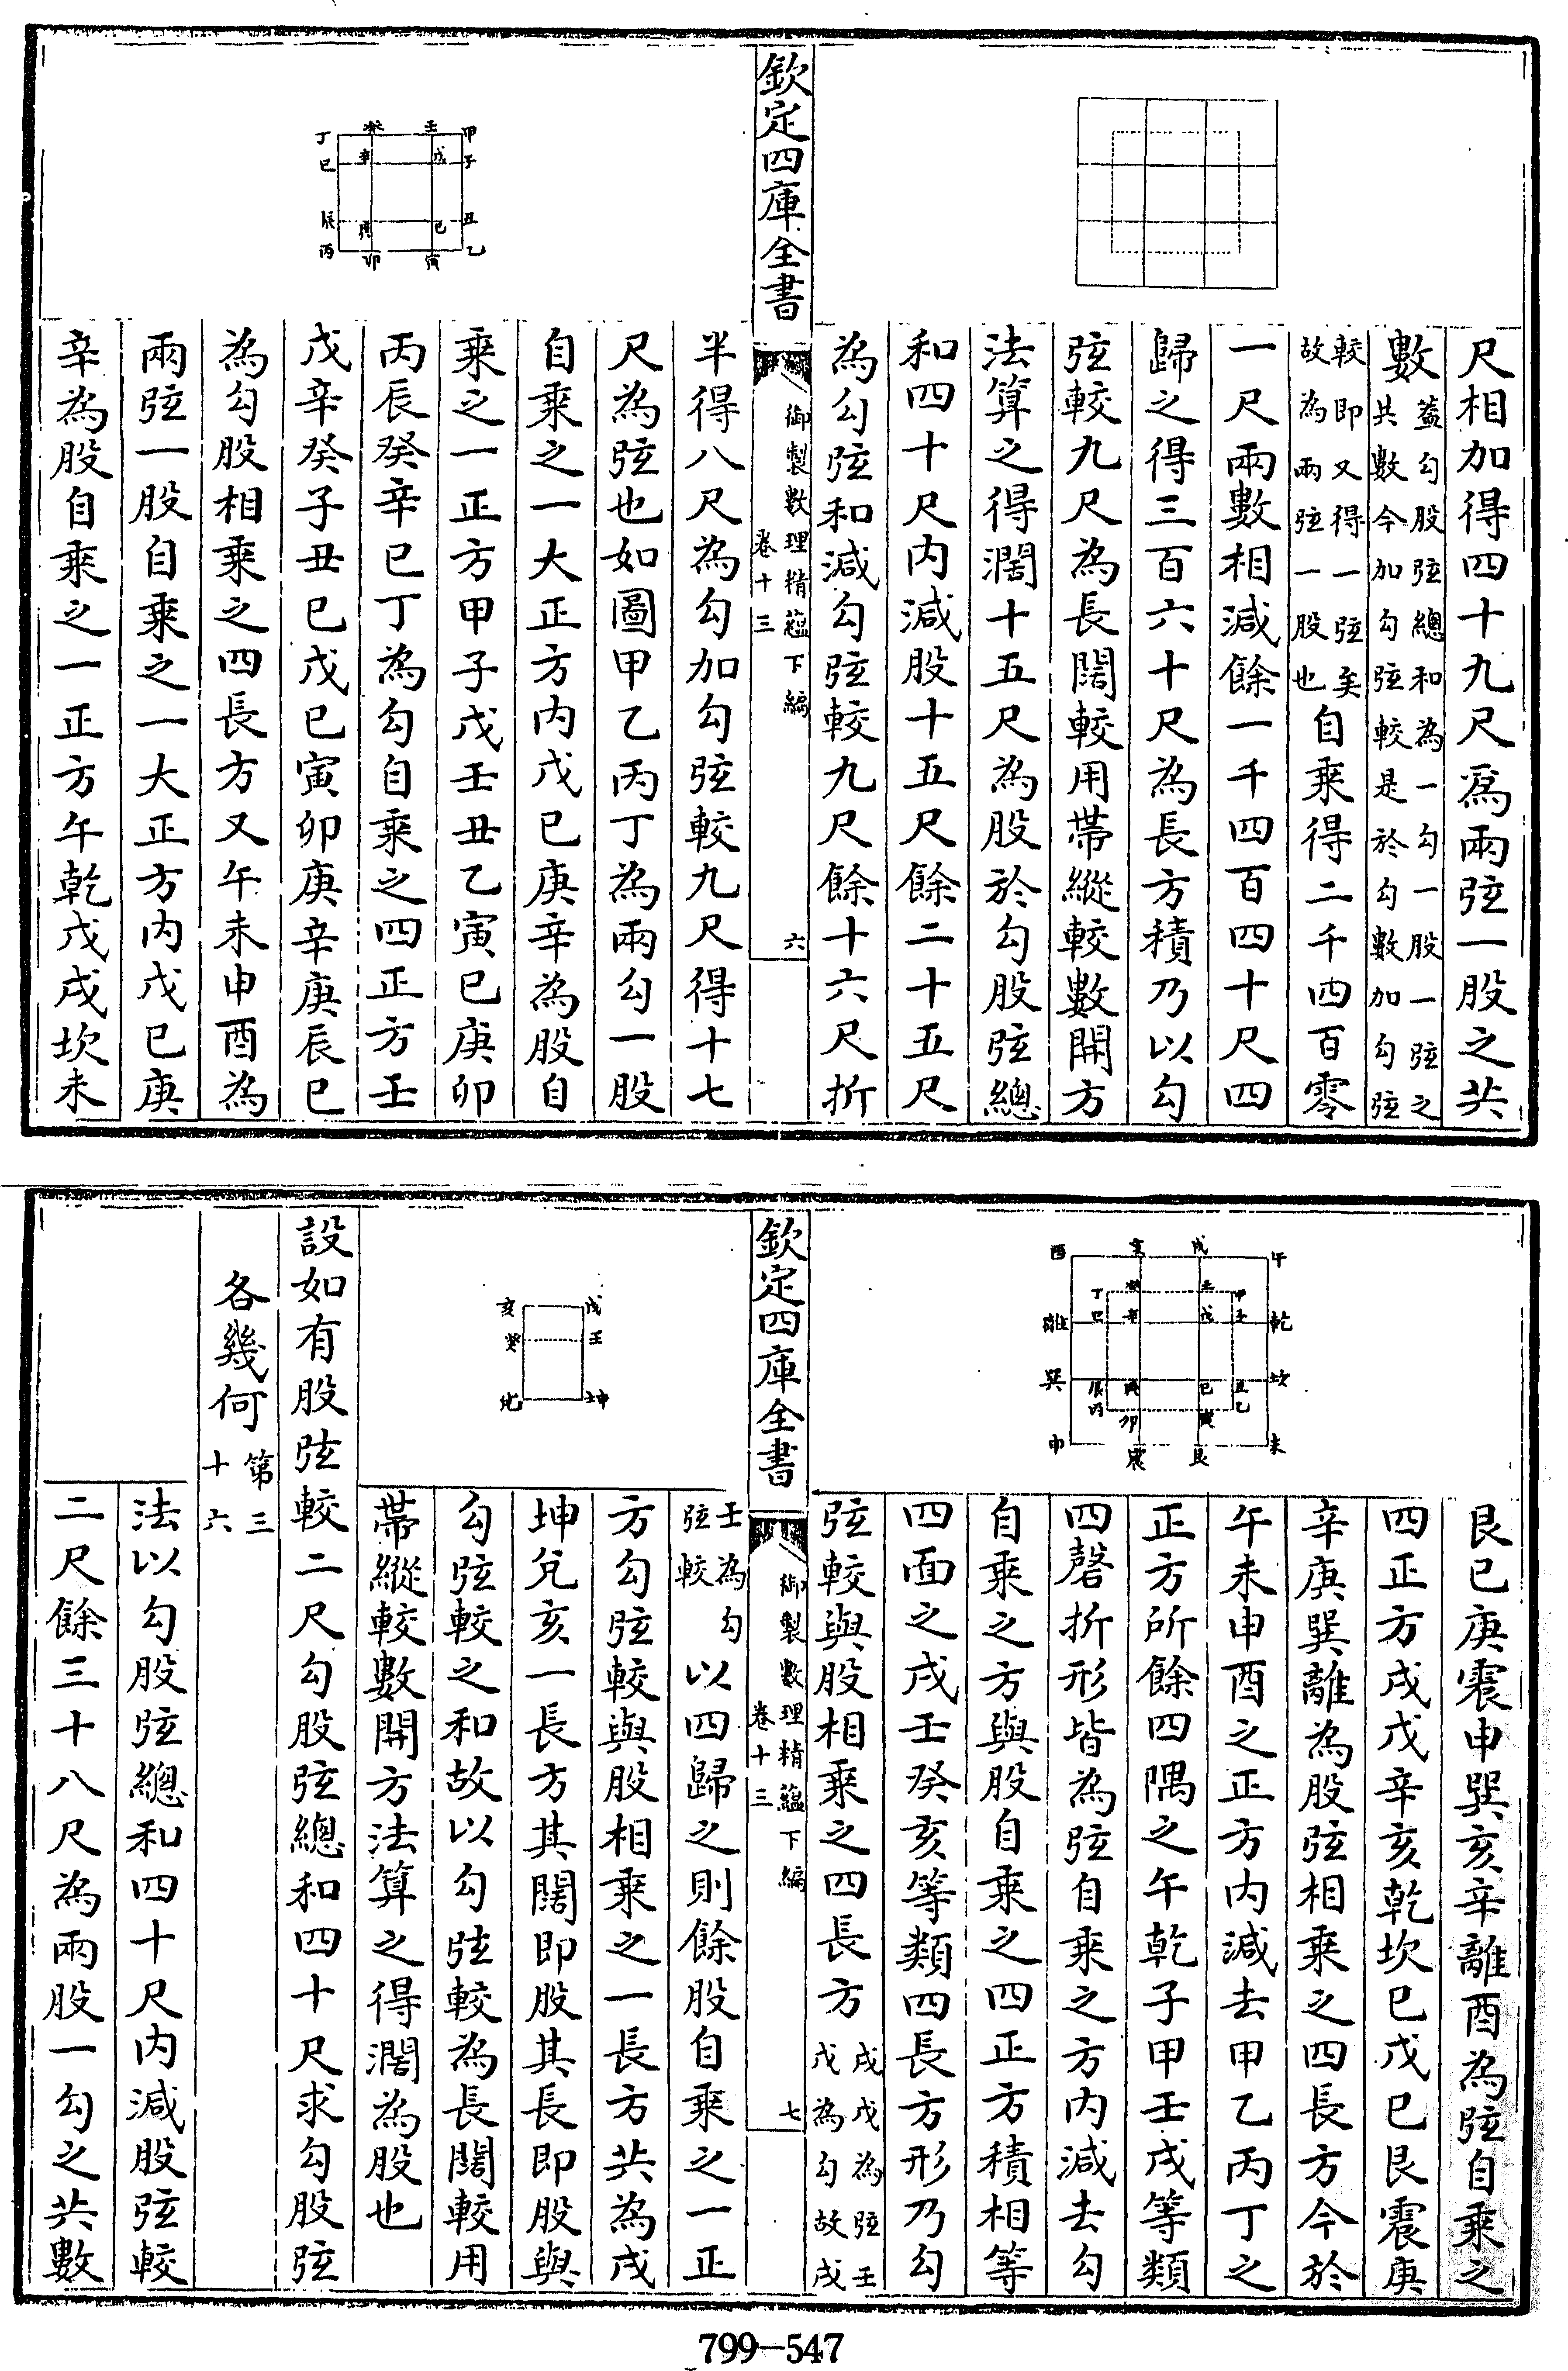 尺相加得四十九尺為兩弦一股之共
數蓋勾股弦總和為一勾一股一弦之共數今加勾弦較是於勾數加勾弦
較即又得一弦矣故為兩弦一股也自乘得二千四百零
一尺兩數相減餘一千四百四十尺四
歸之得三百六十尺為長方積乃以勾
弦較九尺為長闊較用帶縱較數開方
法算之得濶十五尺為股於勾股弦總
和四十尺內減股十五尺餘二十五尺
為勾弦和減勾弦較九尺餘十六尺折
欽定四庫全書
御製數理精蘊下編
卷十三
六
半得八尺為勾加勾弦較九尺得十七
尺為弦也如圖甲乙丙丁為兩勾一股
自乘之一大正方內戊己庚辛為股自
乘之一正方甲子戊壬丑乙寅己庚卯
丙辰癸辛巳丁為勾自乘之四正方壬
戊辛癸子丑己戊己寅卯庚辛庚辰巳
為勾股相乘之四長方又午未申酉為
兩弦一股自乘之一大正方內戊己庚
辛為股自乘之一正方午乾戊戌坎未
甲
壬
癸
丁
子
戊
辛
巳
丑
己
庚
辰
乙
寅
卯
丙
艮己庚震申巽亥辛離酉為弦自乘之
四正方戌戊辛亥乾坎己戊己艮震庚
辛庚巽離為股弦相乘之四長方今於
午未申酉之正方內減去甲乙丙丁之
正方所餘四隅之午乾子甲壬戌等類
四磬折形皆為弦自乘之方內減去勾
自乘之方與股自乘之四正方積相等
四面之戌壬癸亥等類四長方形乃勾
弦較與股相乘之四長方戌戊為弦壬戊為勾故戌
午
戌
亥
酉
甲
壬
癸
丁
乾
子
戊
辛
巳
離
坎
丑
己
庚
辰
巽
乙
寅
卯
丙
未
艮
震
申
欽定四庫全書
御製數理精蘊下編
卷十三
七
壬為勾弦較以四歸之則餘股自乘之一正
方勾弦較與股相乘之一長方共為戌
坤兌亥一長方其闊即股其長即股與
勾弦較之和故以勾弦較為長闊較用
帶縱較數開方法算之得濶為股也
戌
亥
壬
癸
坤
兌
設如有股弦較二尺勾股弦總和四十尺求勾股弦
各幾何第三十六
法以勾股弦總和四十尺內減股弦較
二尺餘三十八尺為兩股一勾之共數
799-547